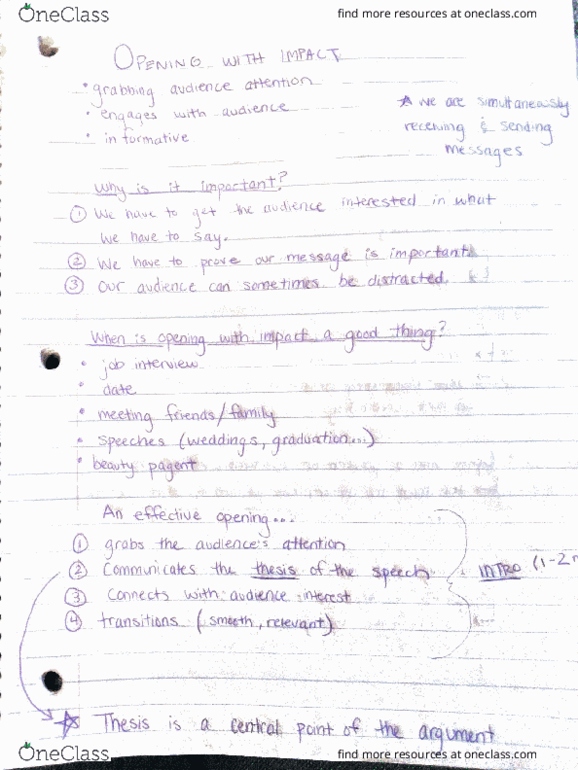 OneClass
find more resources at oneclass.com
OPENING WITH IMPACT
• grabbing audience attention
• engages with audience
• informative
☆ we are simultaneously
receiving & sending
messages
Why is it important?
① We have to get the audience interested in what
we have to say.
② We have to prove our message is important.
③ Our audience can sometimes be distracted.
When is opening with impact a good thing?
• job interview
• date
• meeting friends/family
• speeches (weddings, graduation...)
• beauty pagent
An effective opening...
① grabs the audience's attention
② Communicates the thesis of the speech
③ Connects with audience interest
④ transitions (smooth, relevant)
INTRO (1-2
☆ Thesis is a central point of the argument
OneClass
find more resources at oneclass.com